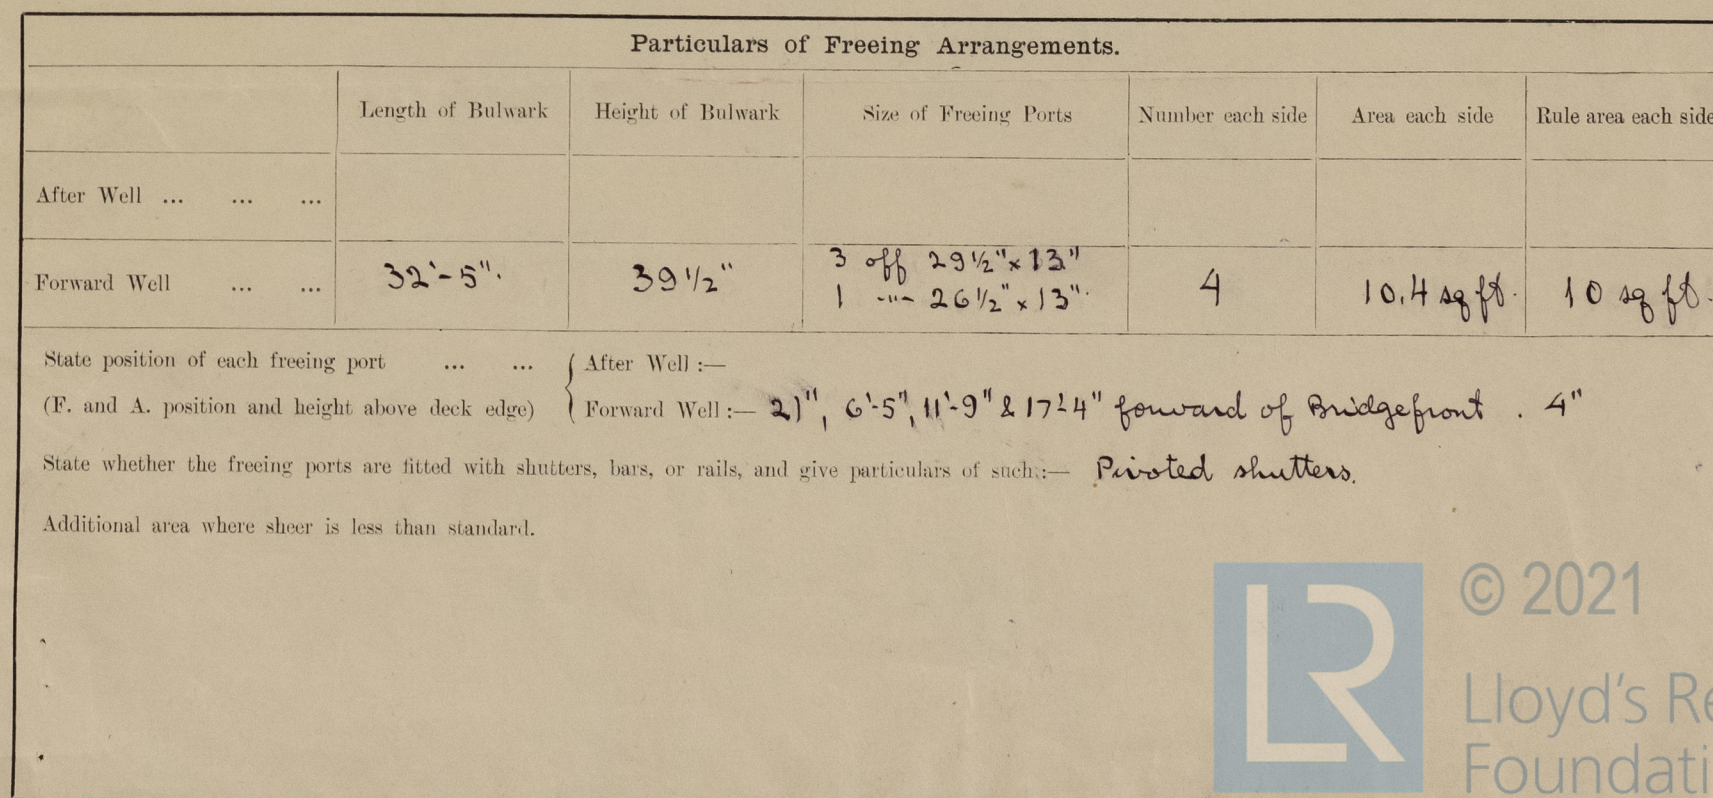 Particulars of Freeing Arrangements.
Length of Bulwark Height of Bulwark Size of Freeing Ports Number each side Area each side Rule area each side
After Well ... ... ...
3 off 29 1/2" x 13"
Forward Well ... ... 32'-5". 39 1/2" 4 10.4 sq ft. 10 sq ft.
1 -"- 26 1/2" x 13".
State position of each freeing port ... ... After Well :—
(F. and A. position and height above deck edge) Forward Well :— 21", 6'-5", 11'-9" & 17'-4" forward of Bridgefront . 4"
State whether the freeing ports are fitted with shutters, bars, or rails, and give particulars of such :— Pivoted shutters.
Additional area where sheer is less than standard.
LR © 2021
Lloyd's Re
Foundati